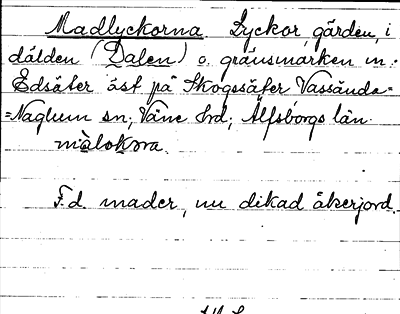 Madlyckorna. Lyckor, gärden, i
dälden (Dalen) o. gränsmarken m:
Edsäter öst på Skogssäter Vassända=
=Naglum sn; Väne hrd; Älfsborgs län.
mạ̀lokọra.
F.d. mader, nu dikad åkerjord.